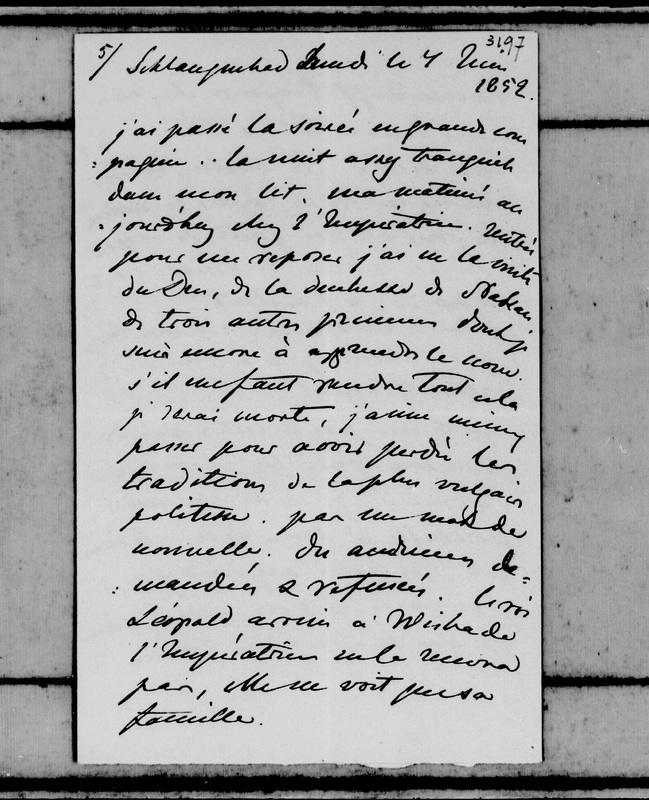 3197
5/ Schlangenbad Lundi le 7 Juin
1852.
j'ai passé la soirée en grande com
:pagnie.. la nuit assez tranquille
dans mon lit. ma matinée au
:jourd'huy chez l'Impératrice. rentrée
pour me reposer j'ai eu la visite
du Duc, de la duchesse de Nassau
de trois autres princesses dont je
suis encore à apprendre le nom.
s'il me faut rendre tout cela
je serai morte, j'aime mieux
passer pour avoir perdu les
traditions de la plus vulgaire
politesse. pas un mot de
nouvelle. des audiences de=
:mandées & refusées. le roi
Léopold arrivé à Wisbade
l'Impératrice ne le recevra
pas, elle ne voit que sa
famille.